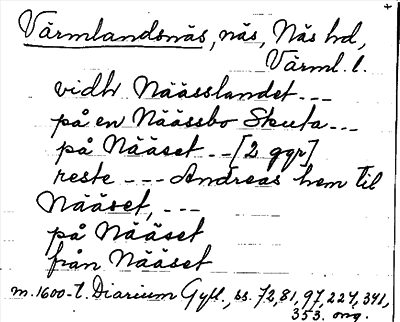 Värmlandsnäs, näs, Näs hd,
Värml. l.
vidh Näässlandet ---
på en Näässbo Skuta ---
på Nääset -- [2 ggr]
reste --- Andreas hem til
Nääset, ---
på Nääset
från Nääset
m. 1600-t. Diarium Gyll., ss. 72, 81, 97, 227, 341,
353. orig.